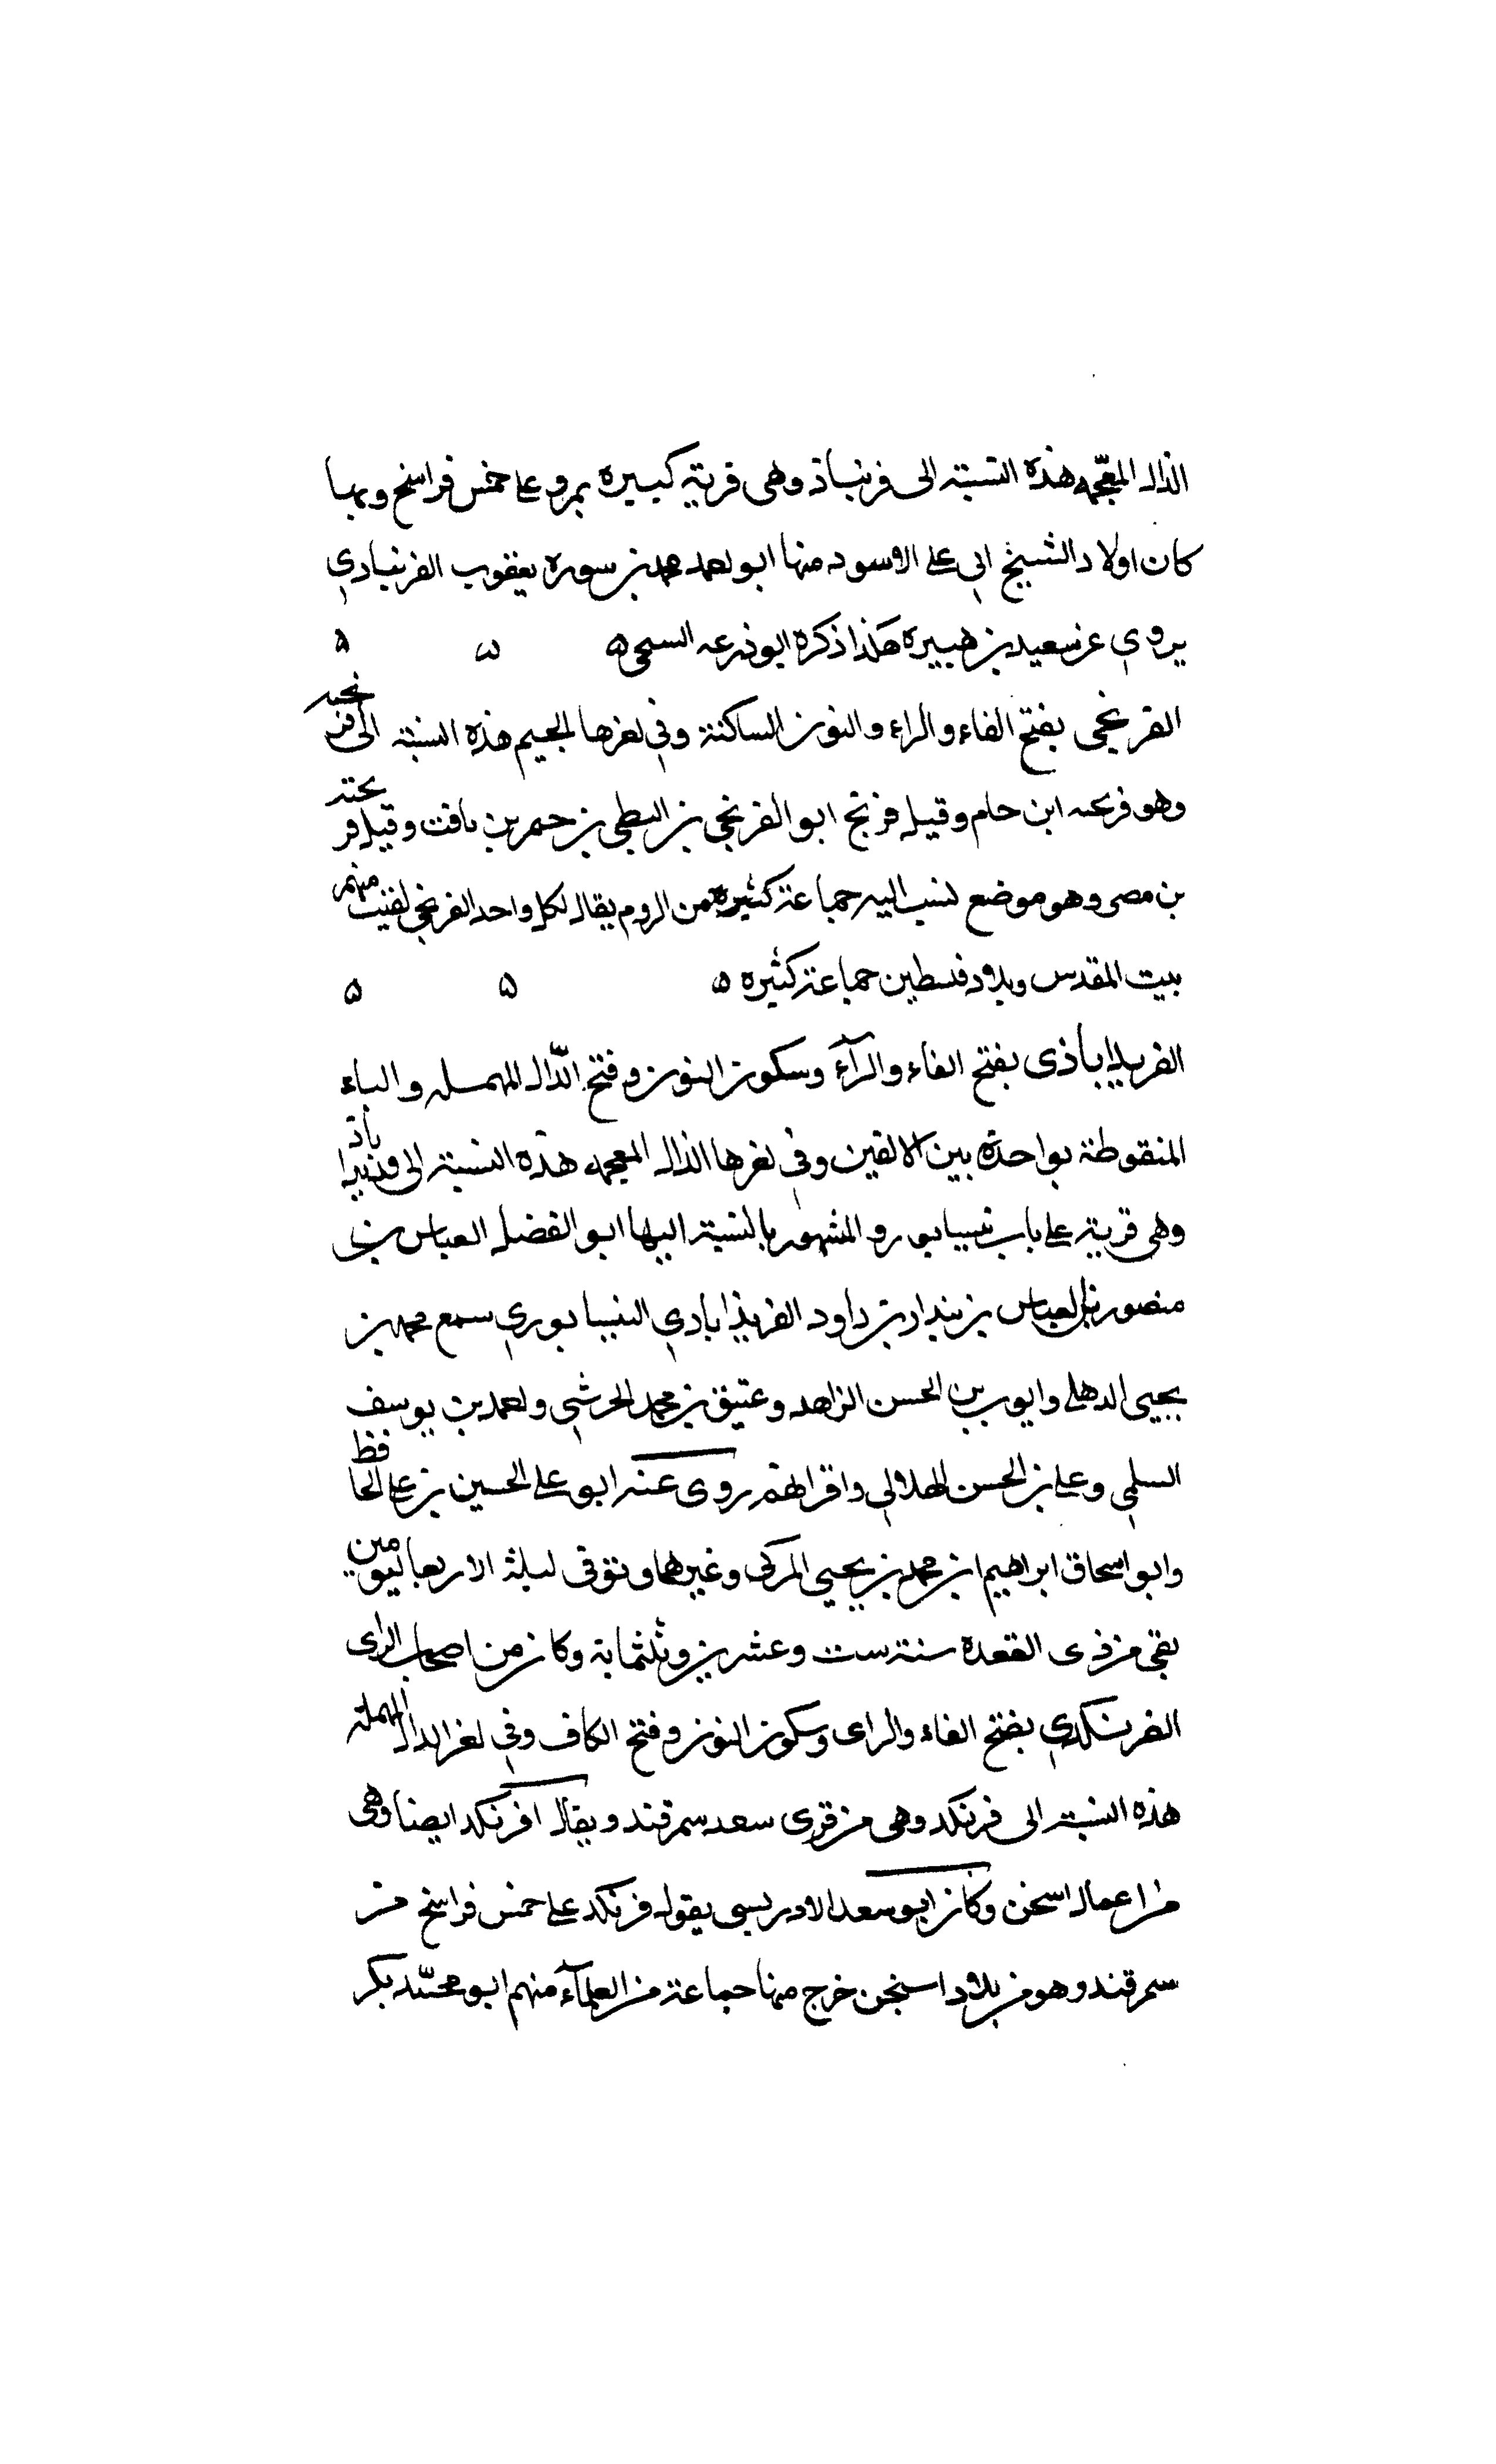 الذال المعجمه هذه النسبة الى فرنباذ وهى قرية كبيرة بمرو على خمس فراسخ وبها
كان اولاد الشيخ ابي على الاسود منها ابو احمد محمد بن سورة يعقوب الفرنبادي
يروي عن سعيد بن هبيرة هكذا ذكره ابو زرعه السبحى ه ه ه
الفرنجى بفتح الفاء والراء والنون الساكنة وفي اخرها الجيم هذه النسبة الى فرنجه
وهو فرنجه ابن حام وقيل فرنج ابو الفرنجى بن بن يافت وقيل
بن مصى وهو موضع نسب اليه جماعة كثيرة من الروم يقال لكل واحد منهم الفرنجي لقيت
بيت المقدس وبلاد فلسطين جماعة كثيره ه ه ه
الفرنداباذى بفتح الفاء والرآء وسكون النون وفتح الدّال المهمله والباء
المنقوطة بواحدة بين الالفين وفي اخرها الذال المعجمه هذه النسبة الى فرنداباذ
وهى قرية على باب نيسابور و المشهور بالنسبة اليها ابو الفضل العباس بن
منصور بن العباس بن بندار بن داود الفرنداباذي النيسابوري سمع محمد بن
يحيى الدهلى وايوب بن الحسن الزاهد وعتيق بن محمد الحرشي واحمد بن يوسف
السلمي وعلى بن الحسن الهلالي واقرانهم روى عنه ابو على الحسين بن على الحافظ
وابو اسحاق ابراهيم ابن محمد بن يحيى المزكى وغيرهما وتوفى ليلة الاربعا ليومين
بقى من ذى القعدة سنة ست وعشرين وثلثماية وكان من اصحاب الراى
الفرنكدي بفتح الفاء والراى وسكون النون وفتح الكاف وفي اخر الدال المهملة
هذه النسبة الى فرنكد وهى من قرى سعد سمرقند ويقال افرنكد ايضا وهى
من اعمال اسحن وكان ابو سعد الادريسى يقول فرنكد على خمس فراسخ من
سمرقند وهو من بلاد اسنجن خرج منها جماعة من العلمآء منهم ابو محمّد بكر